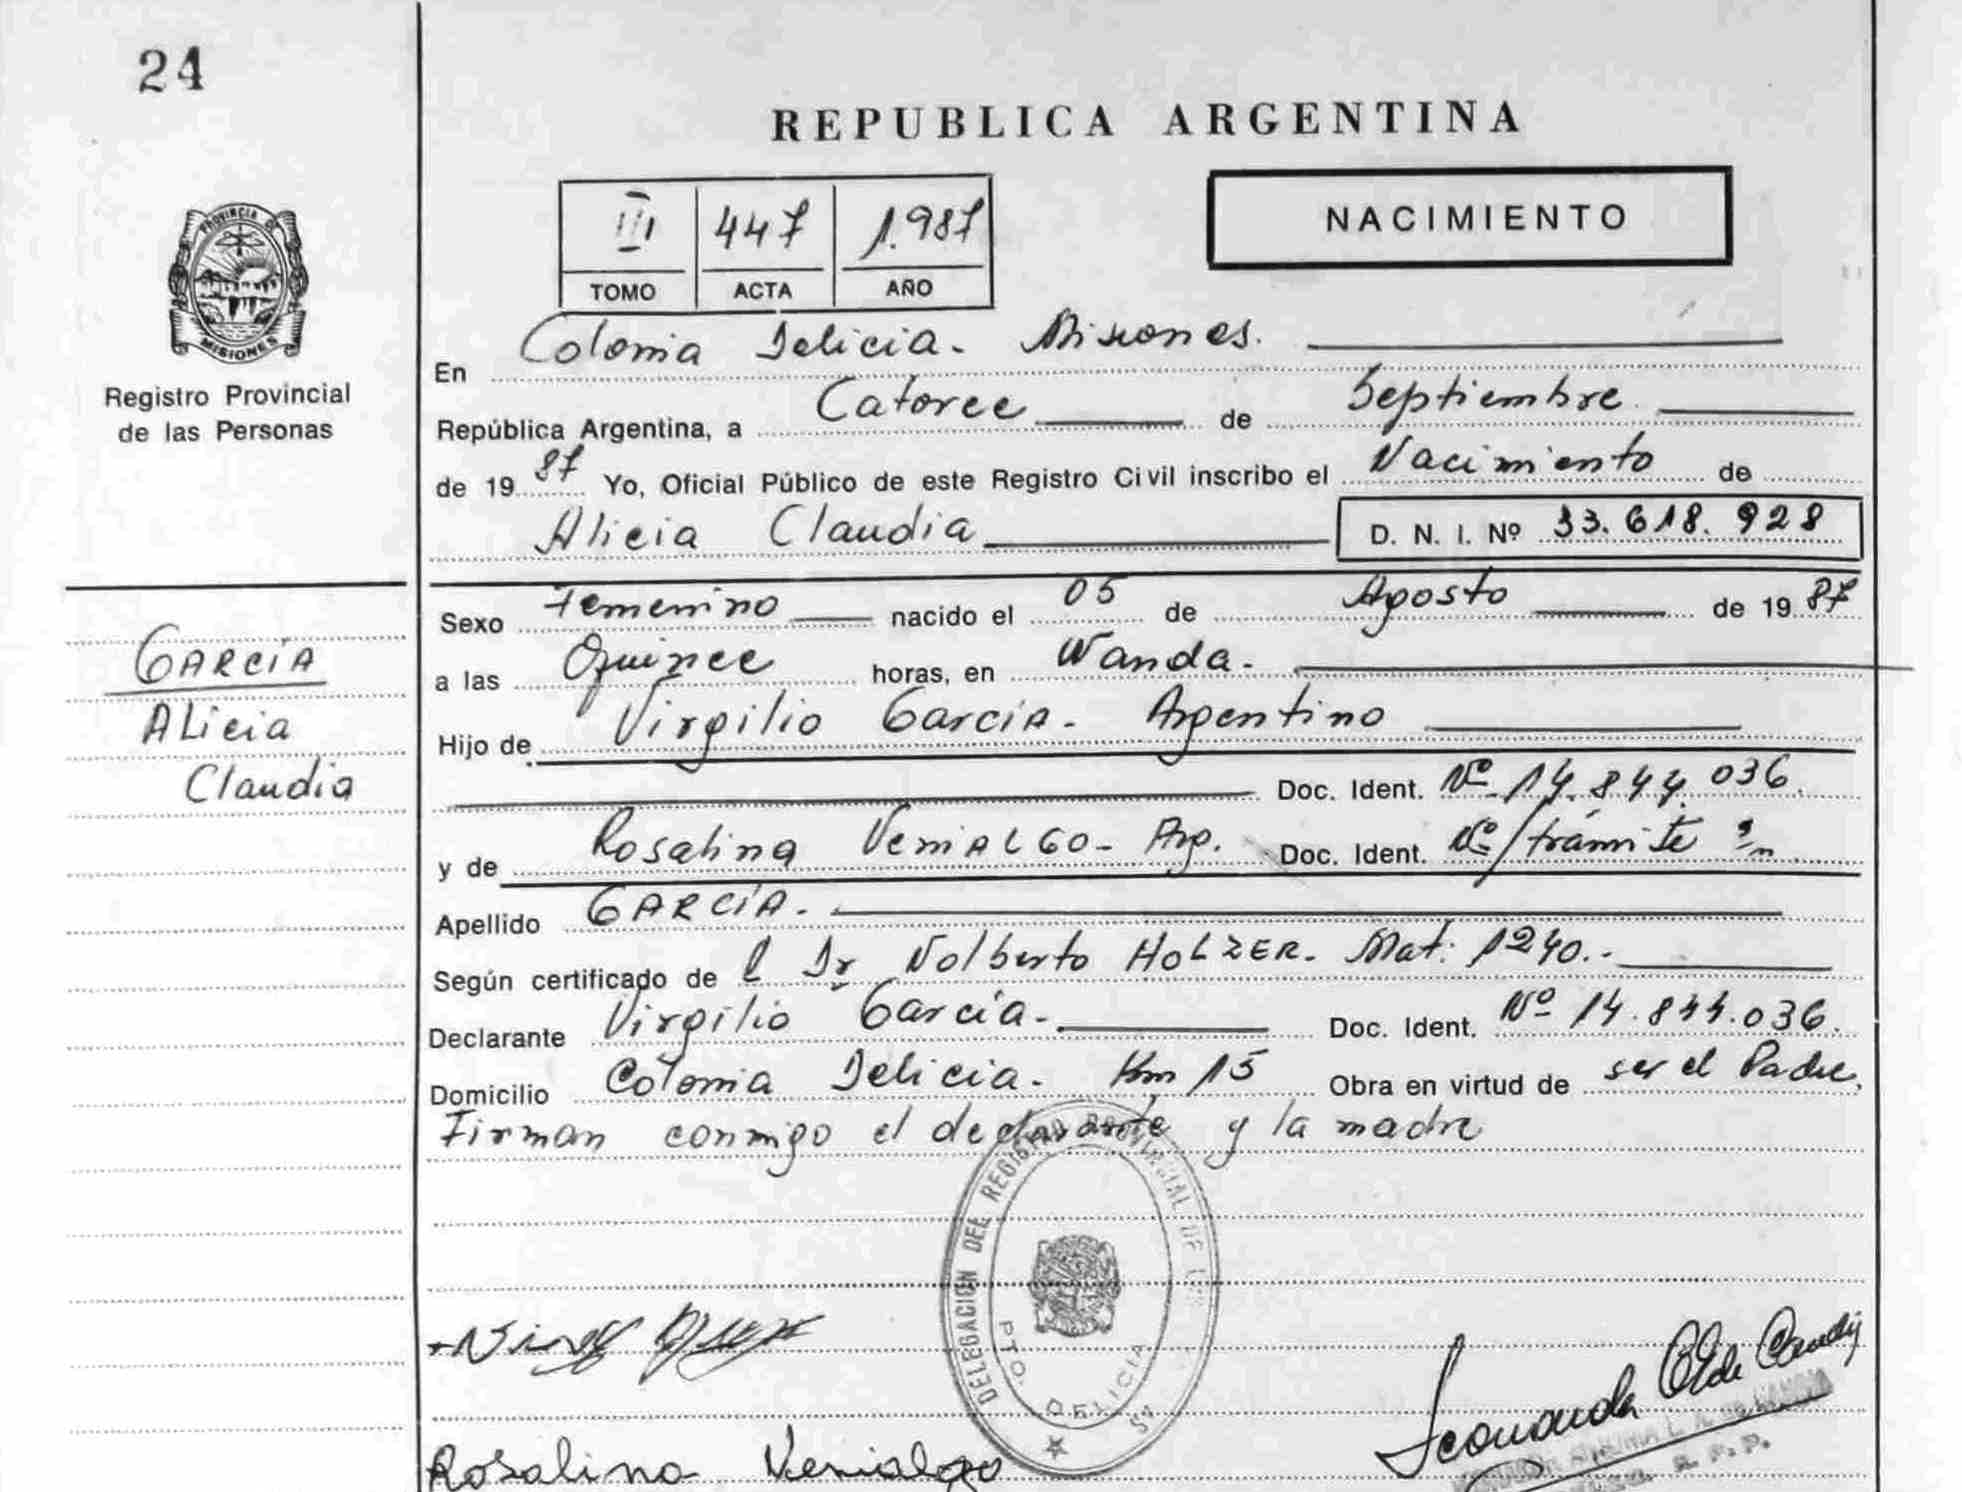 24
REPUBLICA ARGENTINA
III 447 1.987
TOMO ACTA AÑO
NACIMIENTO
PROVINCIA DE
MISIONES
Registro Provincial
de las Personas
En Colonia Delicia. Misiones.
República Argentina, a Catorce de Septiembre.
de 19 87 Yo, Oficial Público de este Registro Civil inscribo el Nacimiento de
Alicia Claudia D. N. I. Nº 33.618.928
Sexo Femenino nacido el 05 de Agosto de 19 87
a las Quince horas, en Wanda.
Hijo de Virgilio García. Argentino
Doc. Ident. Nº 14.844.036.
y de Rosalina VeniALGO. Arg. Doc. Ident. Nº/trámite
Apellido GARCÍA.
Según certificado de l Dr Nolberto HOLZER. Mat: 1240.
Declarante Virgilio García. Doc. Ident. Nº 14.844.036.
Domicilio Colonia Delicia. Km 15 Obra en virtud de ser el Padre.
Firman conmigo el declarante y la madre
GARCÍA
ALicia
Claudia
DELEGACION DEL REGISTRO PROVINCIAL DE
PTO. DELICIA
Rosalina Venialgo